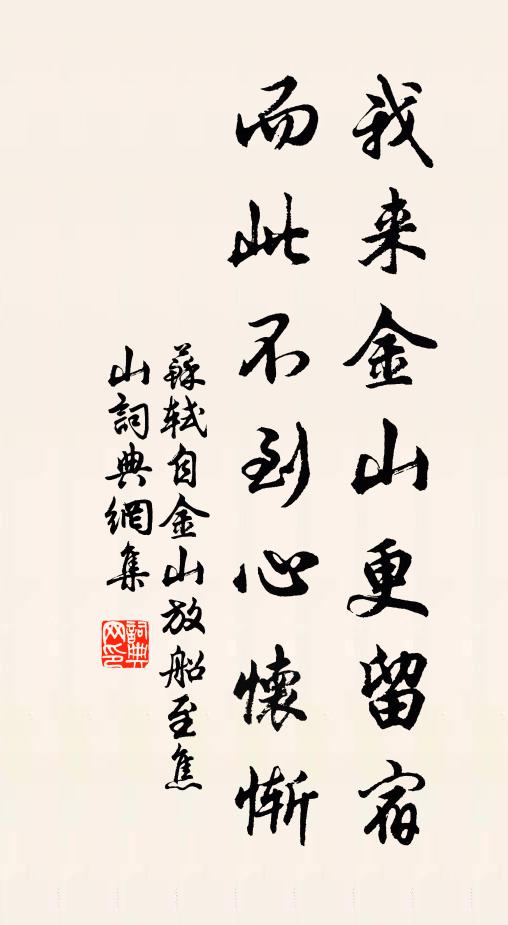 我来金山更留宿
而此不到心懷慚
蘇軾自金山放船至焦
山詞典網集
詞典
网印